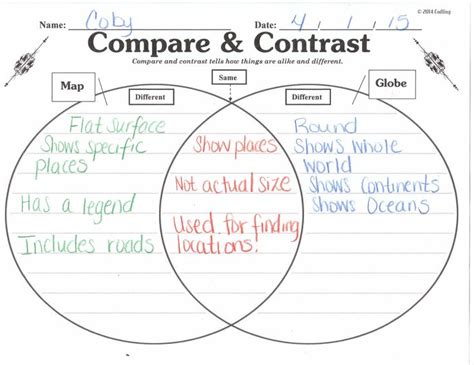 © 2014 Cailling
Name: Coby Date: 4/1/15
Compare & Contrast
Compare and contrast tells how things are alike and different.
Map
Different
Same
Different
Globe
Flat surface
Shows specific
places
Has a legend
Includes roads
Show places
Not actual size
Used for finding
locations!
Round
Shows Whole
World
Shows Continents
Shows Oceans